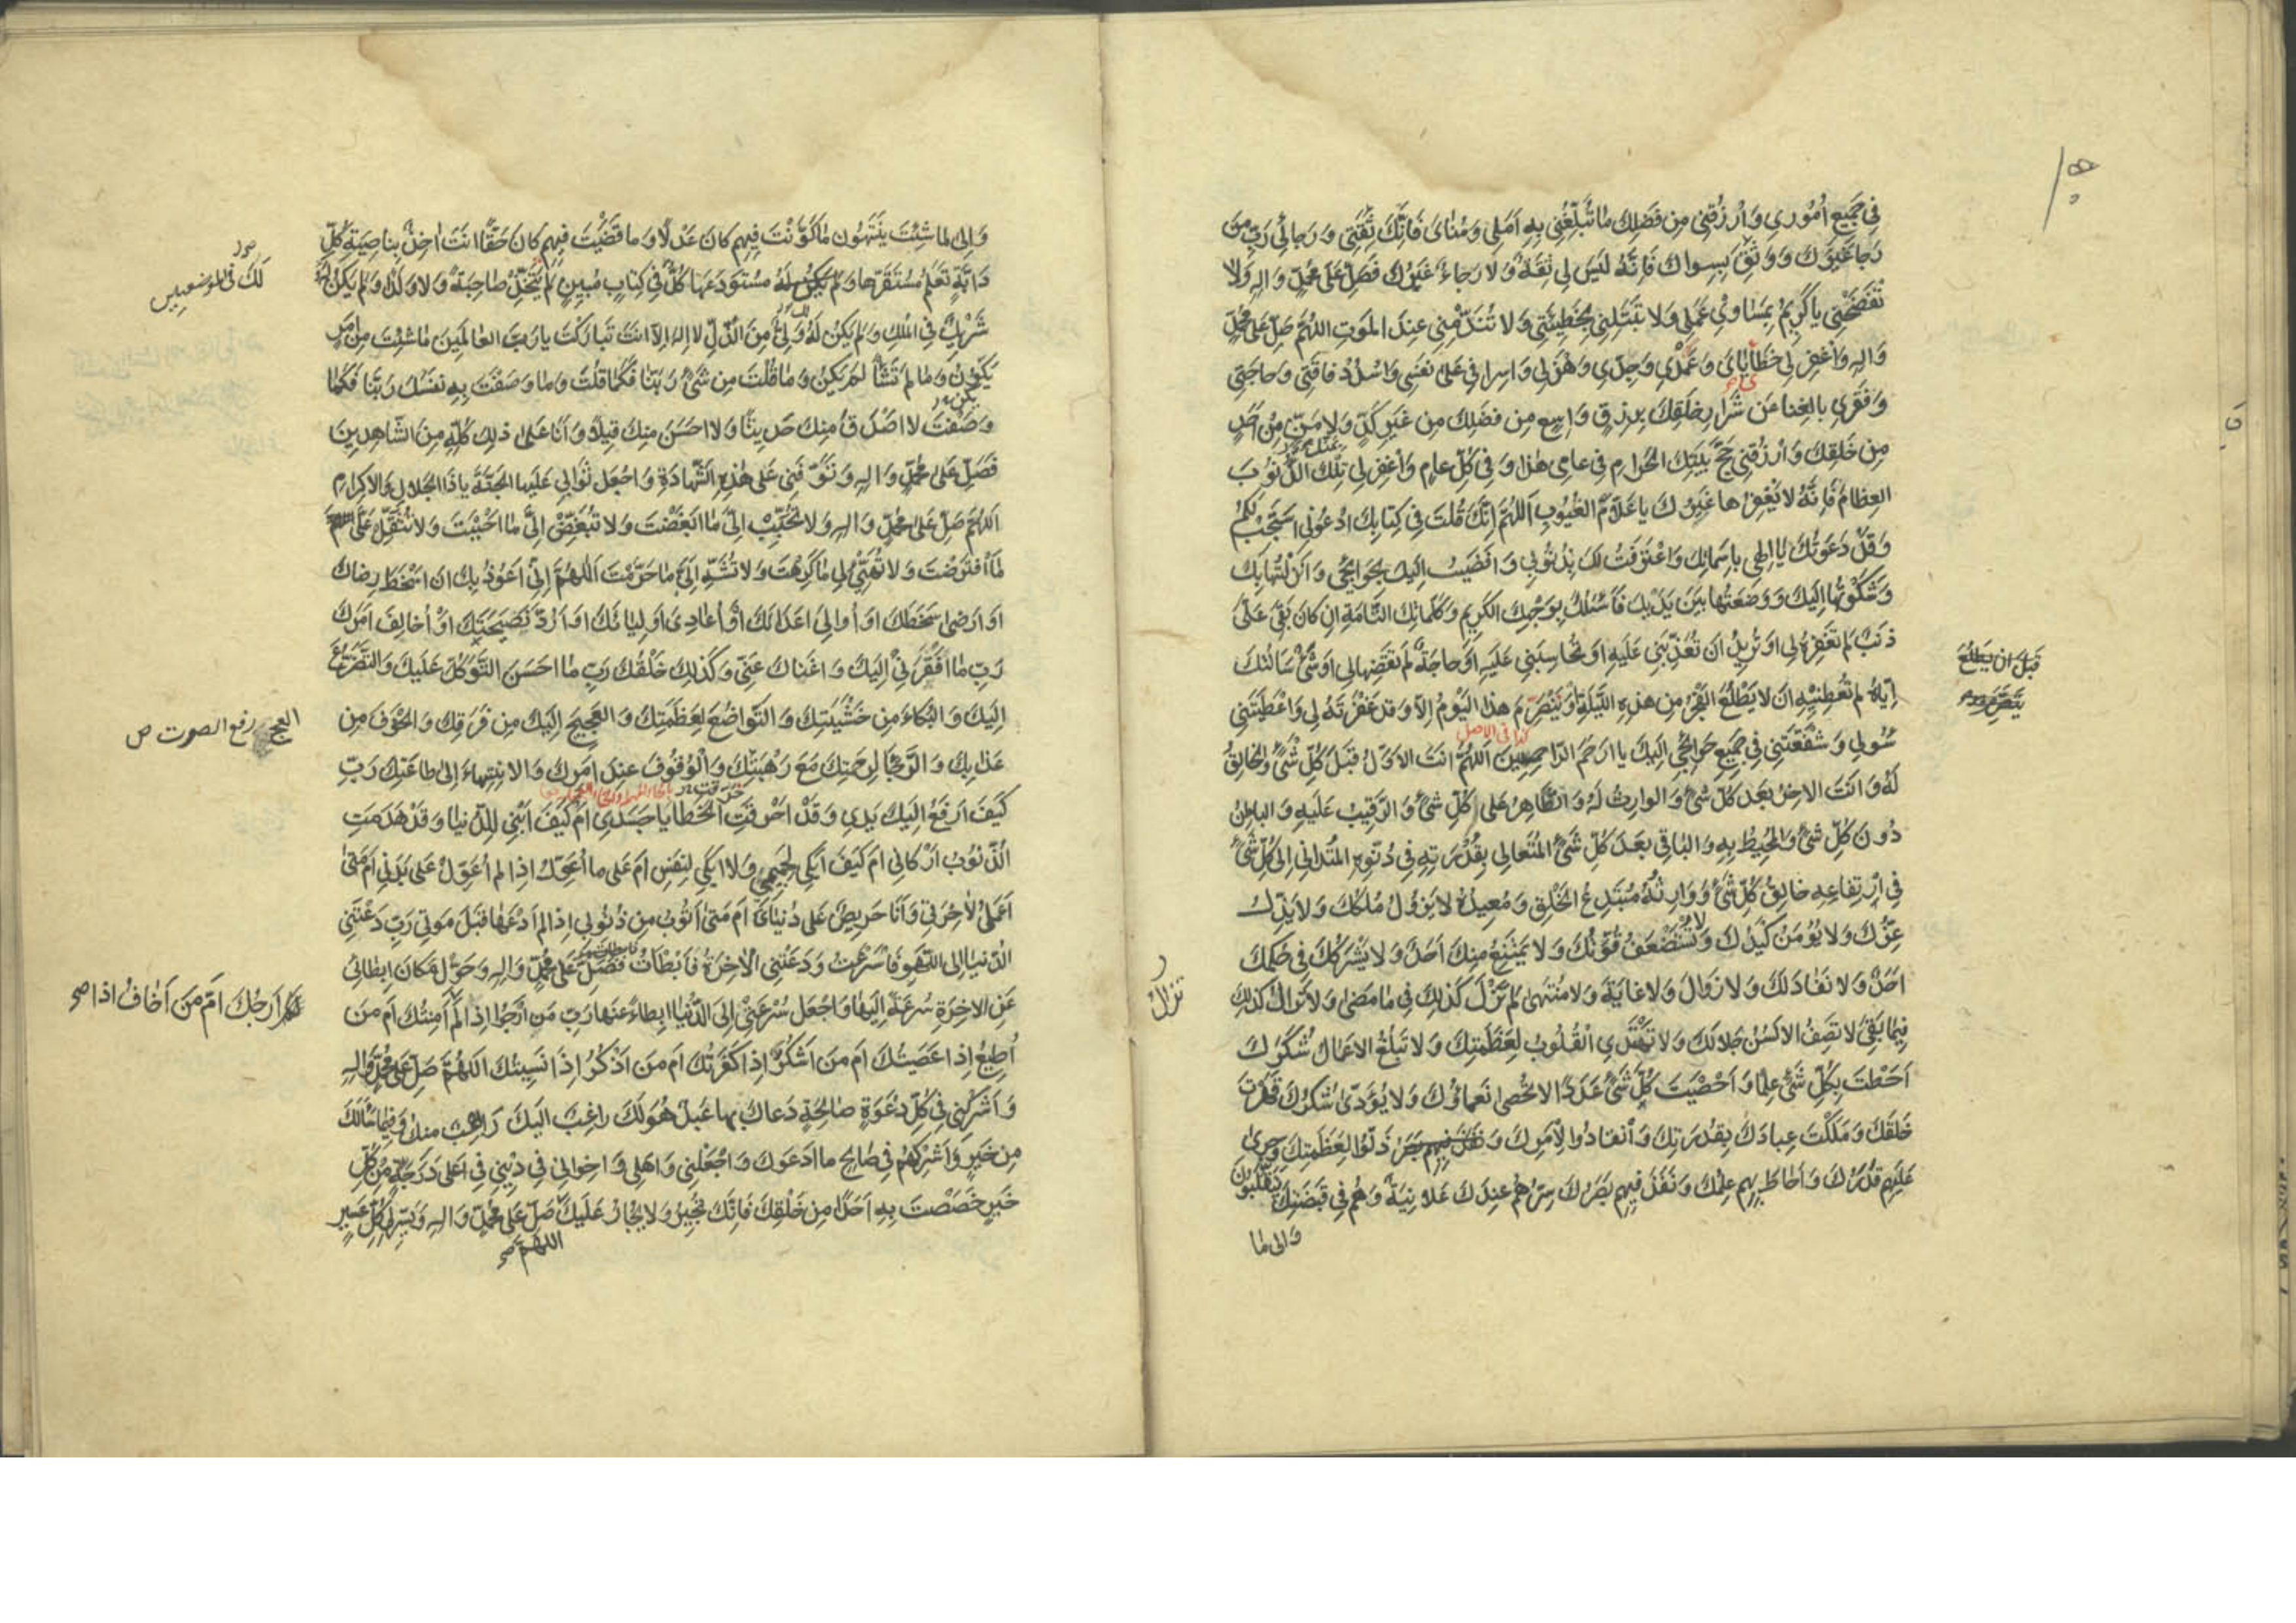 في جَميعِ اُمُوري وَارْزُقني مِن فَضلِكَ ما تُبَلِّغُني بِهِ اَمَلي وَمُنايَ فَاِنَّكَ ثِقَتي وَرَجائي رَبِّ مَن
رَجا غَيرَكَ وَوَثِقَ بِسِواكَ فَاِنَّهُ لَيسَ لي ثِقَةٌ وَلا رَجاءٌ غَيرُكَ فَصَلِّ عَلى مُحَمَّدٍ وَالِهِ وَلا
تَفضَحني يا كَريمُ بِمَساوي عَمَلي وَلا تَبتَلِني بِخَطيئَتي وَلا تُنَدِّمني عِندَ المَوتِ اللهُمَّ صَلِّ عَلى مُحَمَّدٍ
وَالِهِ وَاغفِر لي خَطايايَ وَعَمْدي وَجِدّي وَهَزلي وَاِسرافي عَلى نَفسي وَاسْدُدْ فاقَتي وَحاجَتي
وَفَقري بِالغِنا عَن شِرارِ خَلقِكَ بِرِزقٍ واسِعٍ مِن فَضلِكَ مِن غَيرِ كَدٍّ وَلا مَنٍّ مِن اَحَدٍ
مِن خَلقِكَ وَارْزُقني حَجَّ بَيتِكَ الحَرامِ في عامي هذا وَفي كُلِّ عامٍ وَاغفِر لي تِلكَ الذُّنُوبَ
العِظامَ فَاِنَّهُ لا يَغفِرُها غَيرُكَ يا عَلّامَ الغُيُوبِ اَللهُمَّ اِنَّكَ قُلتَ في كِتابِكَ ادعُوني اَستَجِبْ لَكُم
وَقَد دَعَوتُكَ يا اِلهي بِاَسمائِكَ وَاعتَرَفتُ لَكَ بِذُنُوبي وَاَفضَيتُ اِلَيكَ بِحَوائِجي وَاَنزَلتُها بِكَ
وَشَكَوتُها اِلَيكَ وَوَضَعتُها بَينَ يَدَيكَ فَاَسئَلُكَ بِوَجهِكَ الكَريمِ وَكَلِماتِكَ التّامَّةِ اِن كانَ بَقِيَ عَلَيَّ
ذَنبٌ لَم تَغفِرهُ لي اَو تُريدُ اَن تُعَذِّبَني عَلَيهِ اَو تُحاسِبَني عَلَيهِ اَو حاجَةٌ لَم تَقضِها لي اَو شَيءٌ سَاَلتُكَ
اِيّاهُ لَم تُعطِنيهِ اَن لا يَطلُعَ الفَجرُ مِن هذِهِ اللَّيلَةِ اَو يَنصَرِمَ هذا اليَومُ اِلّا وَقَد غَفَرتَهُ لي وَاَعطَيتَني
كذا في الاصل
سُولي وَشَفَّعتَني في جَميعِ حَوائِجي اِلَيكَ يا اَرحَمَ الرّاحِمينَ اَللهُمَّ اَنتَ الاَوَّلُ قَبلَ كُلِّ شَيءٍ وَالخالِقُ
لَهُ وَاَنتَ الاخِرُ بَعدَ كُلِّ شَيءٍ وَالوارِثُ لَهُ وَالظّاهِرُ عَلى كُلِّ شَيءٍ وَالرَّقيبُ عَلَيهِ وَالباطِنُ
دُونَ كُلِّ شَيءٍ وَالمُحيطُ بِهِ وَالباقي بَعدَ كُلِّ شَيءٍ المُتَعالي بِقُدرَتِهِ في دُنُوِّهِ المُتَداني اِلى كُلِّ شَيءٍ
في ارتِفاعِهِ خالِقُ كُلِّ شَيءٍ وَوارِثُهُ مُبتَدِعُ الخَلقِ وَمُعيدُهُ لا يَزُولُ مُلكُكَ وَلا يَذِلُّ
عِزُّكَ وَلا يُؤمَنُ كَيدُكَ وَلا تُستَضعَفُ قُوَّتُكَ وَلا يَمتَنِعُ مِنكَ اَحَدٌ وَلا يَشرَكُكَ في حُكمِكَ
اَحَدٌ وَلا نَفادَ لَكَ وَلا زَوالَ وَلا غايَةَ وَلا مُنتَهى لَم تَزَل كَذلِكَ في ما مَضى وَلا تَزالُ كَذلِكَ
فيما بَقِيَ لا تَصِفُ الاَلسُنُ جَلالَكَ وَلا تَهتَدي القُلُوبُ لِعَظَمَتِكَ وَلا تَبلُغُ الاَعمالُ شُكرَكَ
اَحَطتَ بِكُلِّ شَيءٍ عِلمًا وَاَحصَيتَ كُلَّ شَيءٍ عَدَدًا لا تُحصى نَعماؤُكَ وَلا يُؤَدّى شُكرُكَ قَهَرتَ
خَلقَكَ وَمَلَكتَ عِبادَكَ بِقُدرَتِكَ وَانقادُوا لِاَمرِكَ وَذَلُّوا لِعَظَمَتِكَ وَجَرى
عَلَيهِم قَدَرُكَ وَاَحاطَ بِهِم عِلمُكَ وَنَفَذَ فيهِم بَصَرُكَ سِرُّهُم عِندَكَ عَلانِيَةٌ وَهُم في قَبضَتِكَ يَتَقَلَّبُونَ
وَالى ما
قَبلَ ان يَطلُعَ
تزالُ
وَاِلى ما شِئتَ يَنتَهُونَ ما كَوَّنتَ فيهِم كانَ عَدلًا وَما قَضَيتَ فيهِم كانَ حَقًّا اَنتَ اخِذٌ بِناصِيَةِ كُلِّ
دابَّةٍ تَعلَمُ مُستَقَرَّها وَمُستَودَعَها كُلٌّ في كِتابٍ مُبينٍ لَم يَتَّخِذ صاحِبَةً وَلا وَلَدًا وَلَم يَكُن لَهُ
شَريكٌ في المُلكِ وَلَم يَكُن لَهُ وَلِيٌّ مِنَ الذُّلِّ لا اِلهَ اِلّا اَنتَ تَبارَكتَ يا رَبَّ العالَمينَ ما شِئتَ مِن اَمرٍ
يَكُونُ وَما لَم تَشَأ لَم يَكُن وَما قُلتَ مِن شَيءٍ رَبَّنا فَكَما قُلتَ وَما وَصَفتَ بِهِ نَفسَكَ رَبَّنا فَكَما
وَصَفتَ لا اَصدَقُ مِنكَ حَديثًا وَلا اَحسَنَ مِنكَ قيلًا وَاَنا عَلى ذلِكَ كُلِّهِ مِنَ الشّاهِدينَ
فَصَلِّ عَلى مُحَمَّدٍ وَالِهِ وَتَوَفَّني عَلى هذِهِ الشَّهادَةِ وَاجعَل ثَوابي عَلَيها الجَنَّةَ يا ذَا الجَلالِ وَالاِكرامِ
اَللهُمَّ صَلِّ عَلى مُحَمَّدٍ وَالِهِ وَلا تُحَبِّبْ اِلَيَّ ما اَبغَضتَ وَلا تُبَغِّضْ اِلَيَّ ما اَحبَبتَ وَلا تُثَقِّل عَلَيَّ
ما افتَرَضتَ وَلا تُهَيِّئ لي ما كَرِهتَ وَلا تُشَهِّ اِلَيَّ ما حَرَّمتَ اَللهُمَّ اِنّي اَعُوذُ بِكَ اَن اَسخَطَ رِضاكَ
اَو اَرضى سَخَطَكَ اَو اُوالِيَ اَعداءَكَ اَو اُعادِيَ اَولِياءَكَ اَو اَرُدَّ نَصيحَتَكَ اَو اُخالِفَ اَمرَكَ
رَبِّ ما اَفقَرَني اِلَيكَ وَاَغناكَ عَنّي وَكَذلِكَ خَلقُكَ رَبِّ ما اَحسَنَ التَّوَكُّلَ عَلَيكَ وَالتَّضَرُّعَ
اِلَيكَ وَالبُكاءَ مِن خَشيَتِكَ وَالتَّواضُعَ لِعَظَمَتِكَ وَالعَجيجَ اِلَيكَ مِن فَرَقِكَ وَالخَوفَ مِن
عَذابِكَ وَالرَّجاءَ لِرَحمَتِكَ مَعَ رَهبَتِكَ وَالوُقُوفَ عِندَ اَمرِكَ وَالاِنتِهاءَ اِلى طاعَتِكَ رَبِّ
كَيفَ اَرفَعُ اِلَيكَ يَدي وَقَد اَحرَقَتِ الخَطايا جَسَدي اَم كَيفَ اَبني لِلدُّنيا وَقَد هَدَمَتِ
الذُّنُوبُ اَركاني اَم كَيفَ اَبكي لِحَميمي وَلا اَبكي لِنَفسي اَم عَلى ما اُعَوِّلُ اِذا لَم اُعَوِّل عَلى بَدَني اَم مَتى
اَعمَلُ لِاخِرَتي وَاَنَا حَريصٌ عَلى دُنيايَ اَم مَتى اَتُوبُ مِن ذُنُوبي اِذا لَم اَدَعها قَبلَ مَوتي رَبِّ دَعَتني
الدُّنيا اِلَى اللَّهوِ فَاَسرَعتُ وَدَعَتنِي الاخِرَةُ فَاَبطَأتُ فَصَلِّ عَلى مُحَمَّدٍ وَالِهِ وَحَوِّل مَكانَ اِبطائي
عَنِ الاخِرَةِ سُرعَةً اِلَيها وَاجعَل سُرعَتي اِلَى الدُّنيا اِبطاءً عَنها رَبِّ مَن اَرجُو اِذا لَم اَمِنتُكَ اَم مَن
اُطيعُ اِذا عَصَيتُكَ اَم مَن اَشكُرُ اِذا كَفَرتُكَ اَم مَن اَذكُرُ اِذا نَسيتُكَ اَللهُمَّ صَلِّ عَلى مُحَمَّدٍ وَالِهِ
وَاَشرِكني في كُلِّ دَعوَةٍ صالِحَةٍ دَعاكَ بِها عَبدٌ هُوَ لَكَ راغِبٌ اِلَيكَ راهِبٌ مِنكَ وَفيما سَاَلَكَ
مِن خَيرٍ وَاَشرِكهُم في صالِحِ ما اَدعُوكَ وَاجعَلني وَاَهلي وَاِخواني في ديني في اَعلى دَرَجَةٍ مِن كُلِّ
خَيرٍ خَصَصتَ بِهِ اَحَدًا مِن خَلقِكَ فَاِنَّكَ تُجيرُ وَلا يُجارُ عَلَيكَ صَلِّ عَلى مُحَمَّدٍ وَالِهِ وَيَسِّر لي كُلَّ عَسيرٍ
اللهُمَّ صح
لَكَ في الموضعين
العج رفع الصوت ص
اَرجُكَ اَم مَن اَخافُ اذا صح